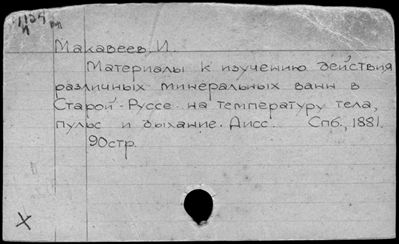 1124
Макавеев, И.
Материалы к изучению действия
различных минеральных ванн в
Старой-Руссе на температуру тела,
пульс и дыхание. Дисс. Спб., 1881.
90стр.
X